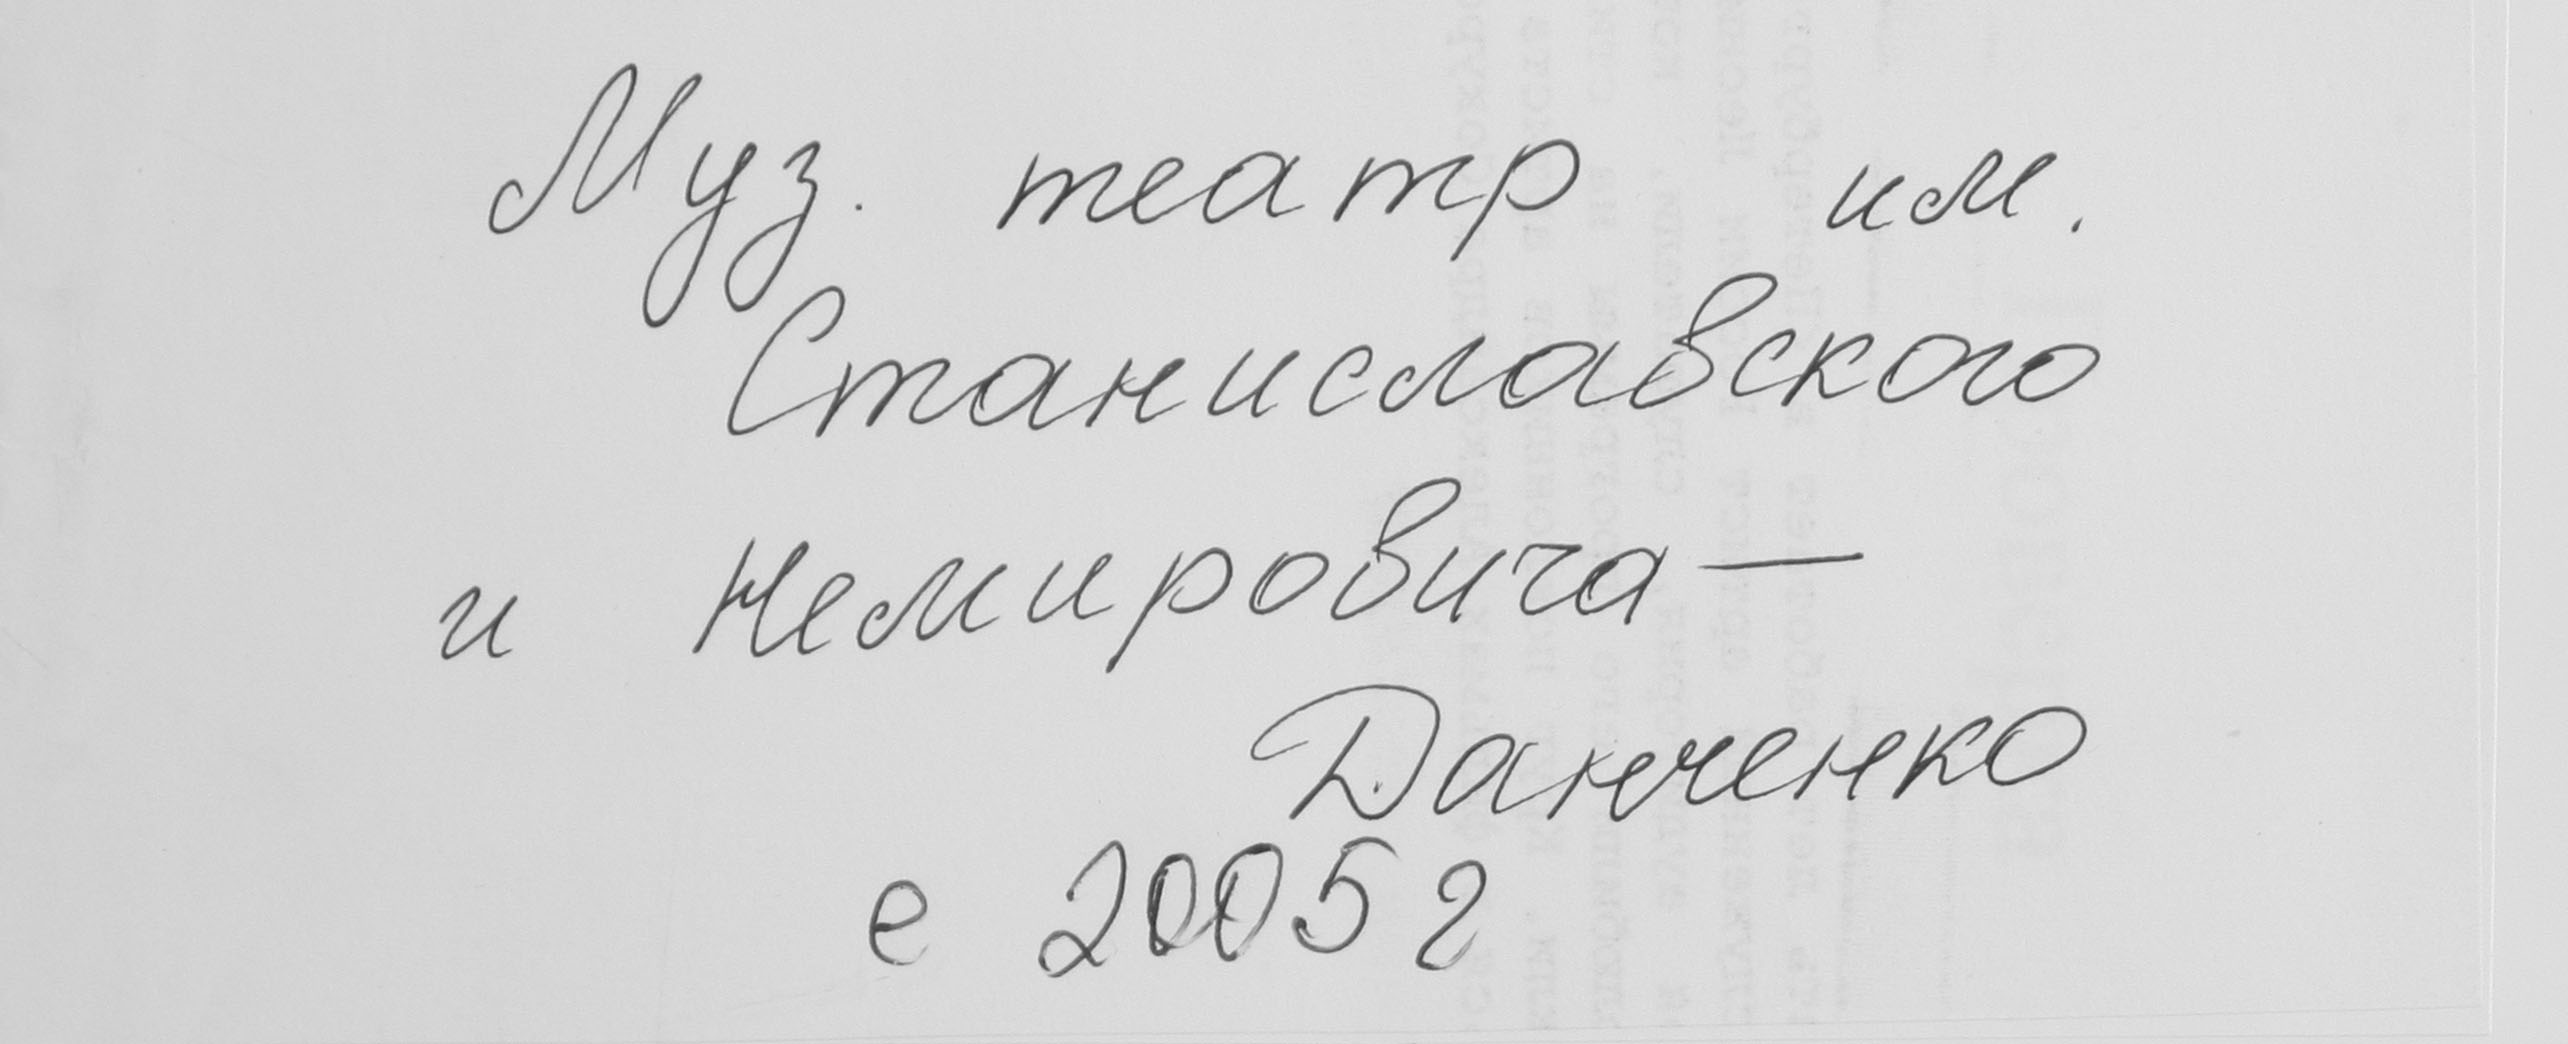 Муз. театр им.
Станиславского
и Немировича—
Данченко
с 2005 г